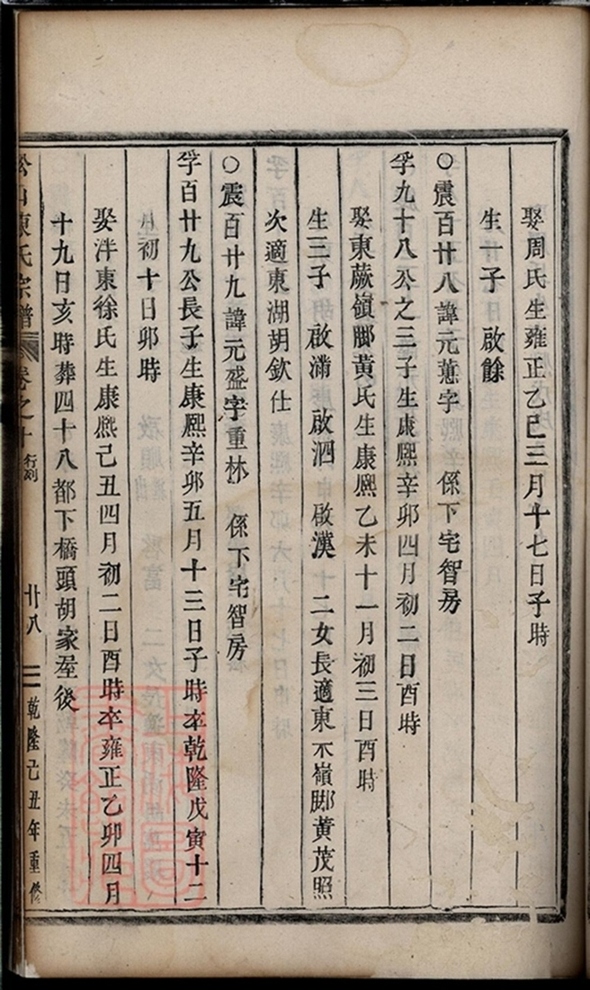 娶周氏生雍正乙巳三月十七日子時
生一子 啟餘
○震百廿八諱元薏字 係下宅智房
孚九十八公之三子生康熙辛卯四月初二日酉時
娶東蕨嶺腳黃氏生康熙乙未十一月初三日酉時
生三子 啟滿 啟泗 啟漢 二女長適東不嶺腳黃茂照
次適東湖胡欽仕
○震百廿九諱元盛字重林 係下宅智房
孚百廿九公長子生康熙辛卯五月十三日子時卒乾隆戊寅十二
月初十日卯時
娶泮東徐氏生康熙己丑四月初二日酉時卒雍正乙卯四月
十九日亥時葬四十八都下橋頭胡家壟後
松山陳氏宗譜 卷之十 行列 廿八 乾隆己丑年重修